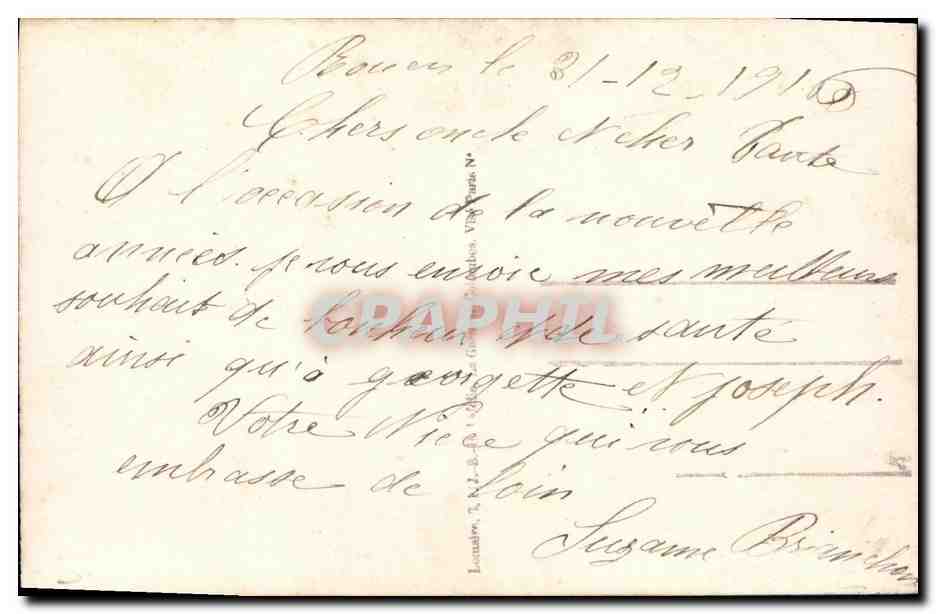 Rouen le 31-12-1916
Chers oncle et cher Tante
A l'occasion de la nouvelle
années. je vous envoie mes meilleurs
souhait de bonheur et de santé
ainsi qu'à georgette et joseph.
Votre Nièce qui vous
embrasse de loin
Suzanne Brinchon
CPAPHIL
Visé Paris N°